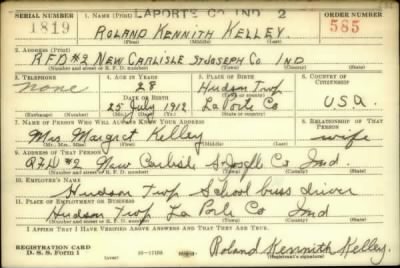 LAPORTE CO IND 2
SERIAL NUMBER 1. NAME (Print) ORDER NUMBER
1819 ROLAND KENNITH KELLEY. 585
(First) (Middle) (Last)
2. ADDRESS (Print)
RFD#2 NEW CARLISLE ST JOSEPH CO. IND
(Number and street or R. F. D. number) (Town) (County) (State)
3. TELEPHONE 4. AGE IN YEARS 5. PLACE OF BIRTH 6. COUNTRY OF CITIZENSHIP
none 28 Hudson Twp
DATE OF BIRTH (Town or county)
25 July 1912 La Porte Co U.S.A.
(Exchange) (Number) (Mo.) (Day) (Yr.) (State or country)
7. NAME OF PERSON WHO WILL ALWAYS KNOW YOUR ADDRESS 8. RELATIONSHIP OF THAT PERSON
Mrs Margret Kelley wife
(Mr., Mrs., Miss) (First) (Middle) (Last)
9. ADDRESS OF THAT PERSON
R.F.D #2 New Carlisle St Joseph Co Ind.
(Number and street or R. F. D. number) (Town) (County) (State)
10. EMPLOYER'S NAME
Hudson Twp School buss driver
11. PLACE OF EMPLOYMENT OR BUSINESS
Hudson Twp La Porte Co Ind
(Number and street or R. F. D. number) (Town) (County) (State)
I AFFIRM THAT I HAVE VERIFIED ABOVE ANSWERS AND THAT THEY ARE TRUE.
REGISTRATION CARD
D. S. S. Form 1 (over) Roland Kennith Kelley.
(Registrant's signature)